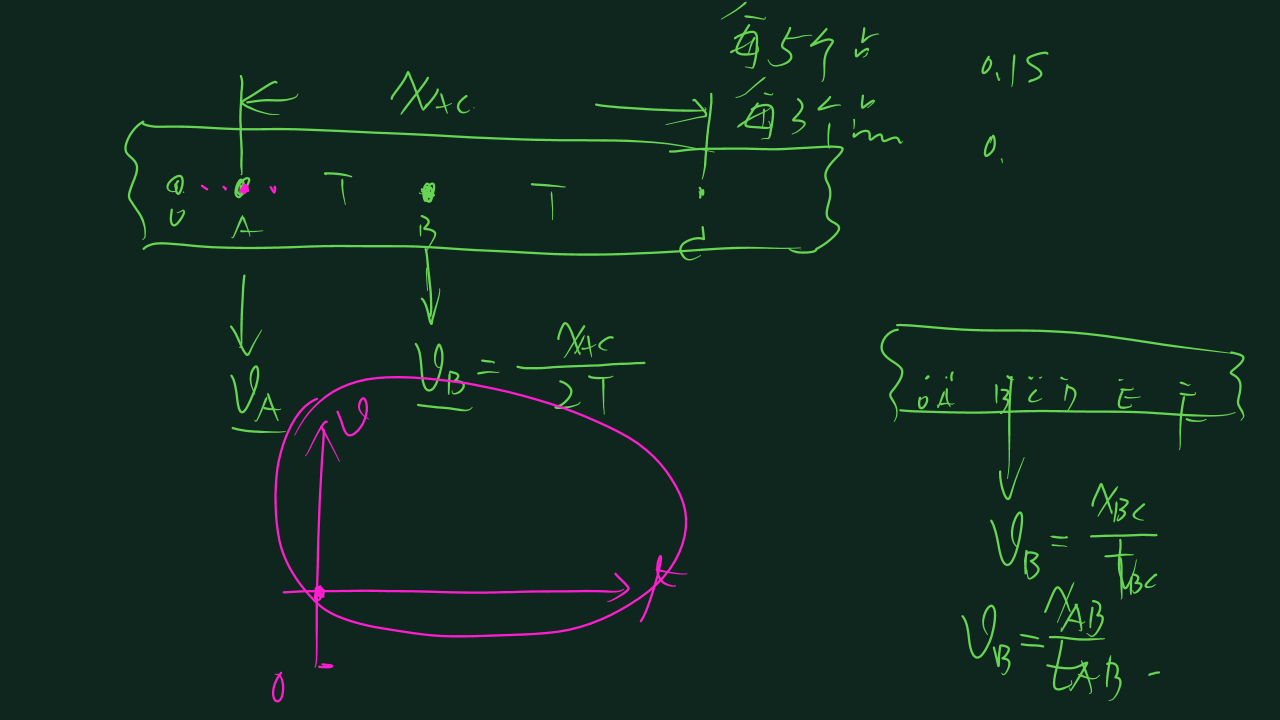 每5个点 0.1s
每3个点 0.
x_AC
0 A T B T C
v_A
v_B = x_AC / 2T
v
t
0
0 A B C D E F
v_B = x_BC / t_BC
v_B = x_AB / t_AB